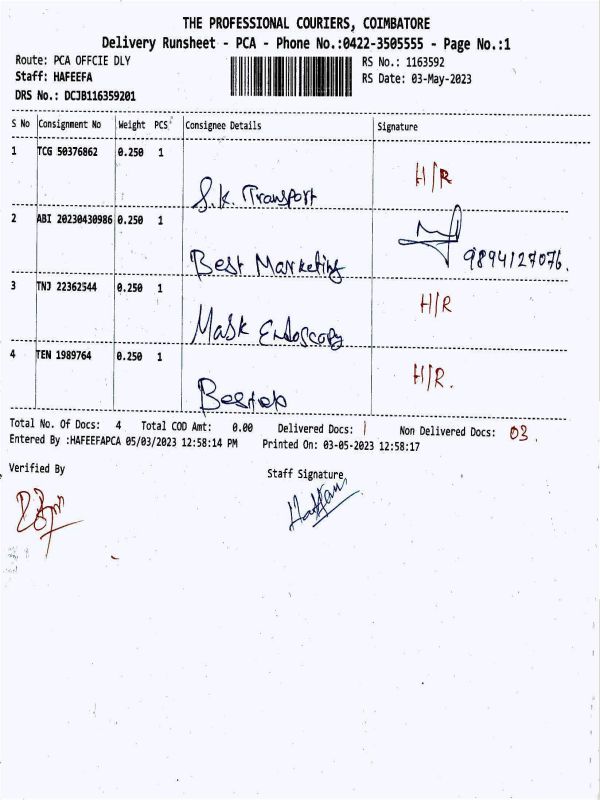 THE PROFESSIONAL COURIERS, COIMBATORE
Delivery Runsheet - PCA - Phone No.:0422-3505555 - Page No.:1
Route: PCA OFFCIE DLY RS No.: 1163592
Staff: HAFEEFA RS Date: 03-May-2023
DRS No.: DCJB116359201
S No Consignment No Weight PCS Consignee Details Signature
1 TCG 50376862 0.250 1 H/R
S.K. Transport
2 ABI 20230430986 0.250 1
Best Marketing 9894127076.
3 TNJ 22362544 0.250 1 H/R
Mask Endoscopy
4 TEN 1989764 0.250 1 H/R.
Total No. Of Docs: 4 Total COD Amt: 0.00 Delivered Docs: 1 Non Delivered Docs: 03.
Entered By :HAFEEFAPCA 05/03/2023 12:58:14 PM Printed On: 03-05-2023 12:58:17
Verified By Staff Signature